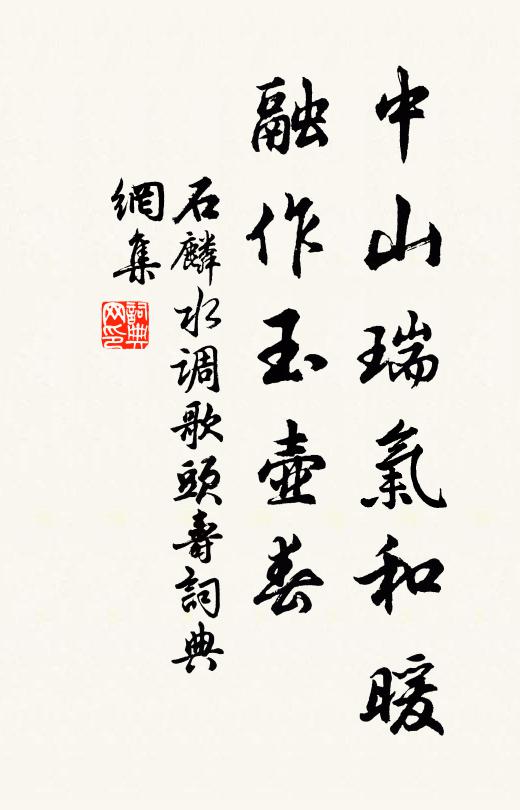 中山瑞氣和暖
融作玉壺春
石麟水调歌頭壽詞典
網集
詞典
网印